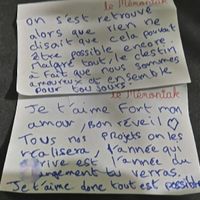 le Mérontak
on s'est retrouvé
alors que rien ne
disait que cela pouvait
être possible encore
Malgré tout, le destin
à fait que nous sommes
amoureux et ensemble
Pour toujours
le Mérontak
Je t'aime Fort mon
amour, Bon réveil ♡
Tous nos Projets on les
réalisera, l'année qui
rive est l'année du
ngement tu verras.
Je t'aime donc tout est possible